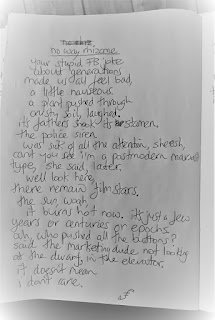 no way rhizome
your stupid FB joke
about generations
made us all feel bad,
a little nauseous
a plant pushed through
crusty soil, laughed.
its father shook its stamen.
the police siren
was sick of all the attention, sheesh,
cant you see I'm a postmodern marxist
type, she said, later.
well look here,
there remain film stars.
the sun woah
it burns hot now. it's just a few
years or centuries or epochs
ah, who pushed all the buttons?
said the marketing dude not looking
at the dwarf, in the elevator.
it doesn't mean
i don't care.